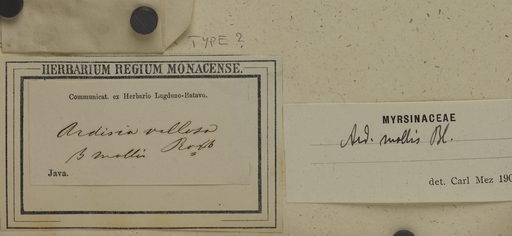 TYPE?
HERBARIUM REGIUM MONACENSE.
Communicat. ex Herbario Lugduno-Batavo.
Ardisia villosa
β mollis Roxb
Java.
MYRSINACEAE
Ard. mollis Bl.
det. Carl Mez 190